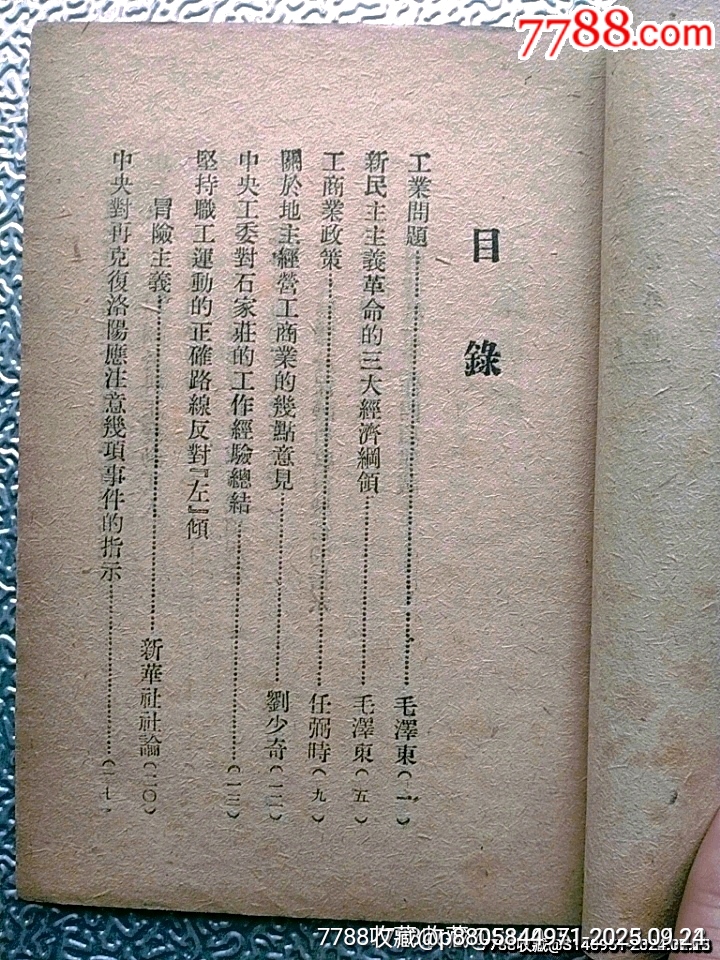 7788.com
目錄
工業問題……毛澤東(一)
新民主主義革命的三大經濟綱領……毛澤東(五)
工商業政策……任弼時(九)
關於地主經營工商業的幾點意見……劉少奇(一二)
中央工委對石家莊的工作經驗總結……(一三)
堅持職工運動的正確路線反對『左』傾
冒險主義……新華社社論(二〇)
中央對再克復洛陽應注意幾項事件的指示……(一七)
7788收藏@p8805844971-2025.09.24